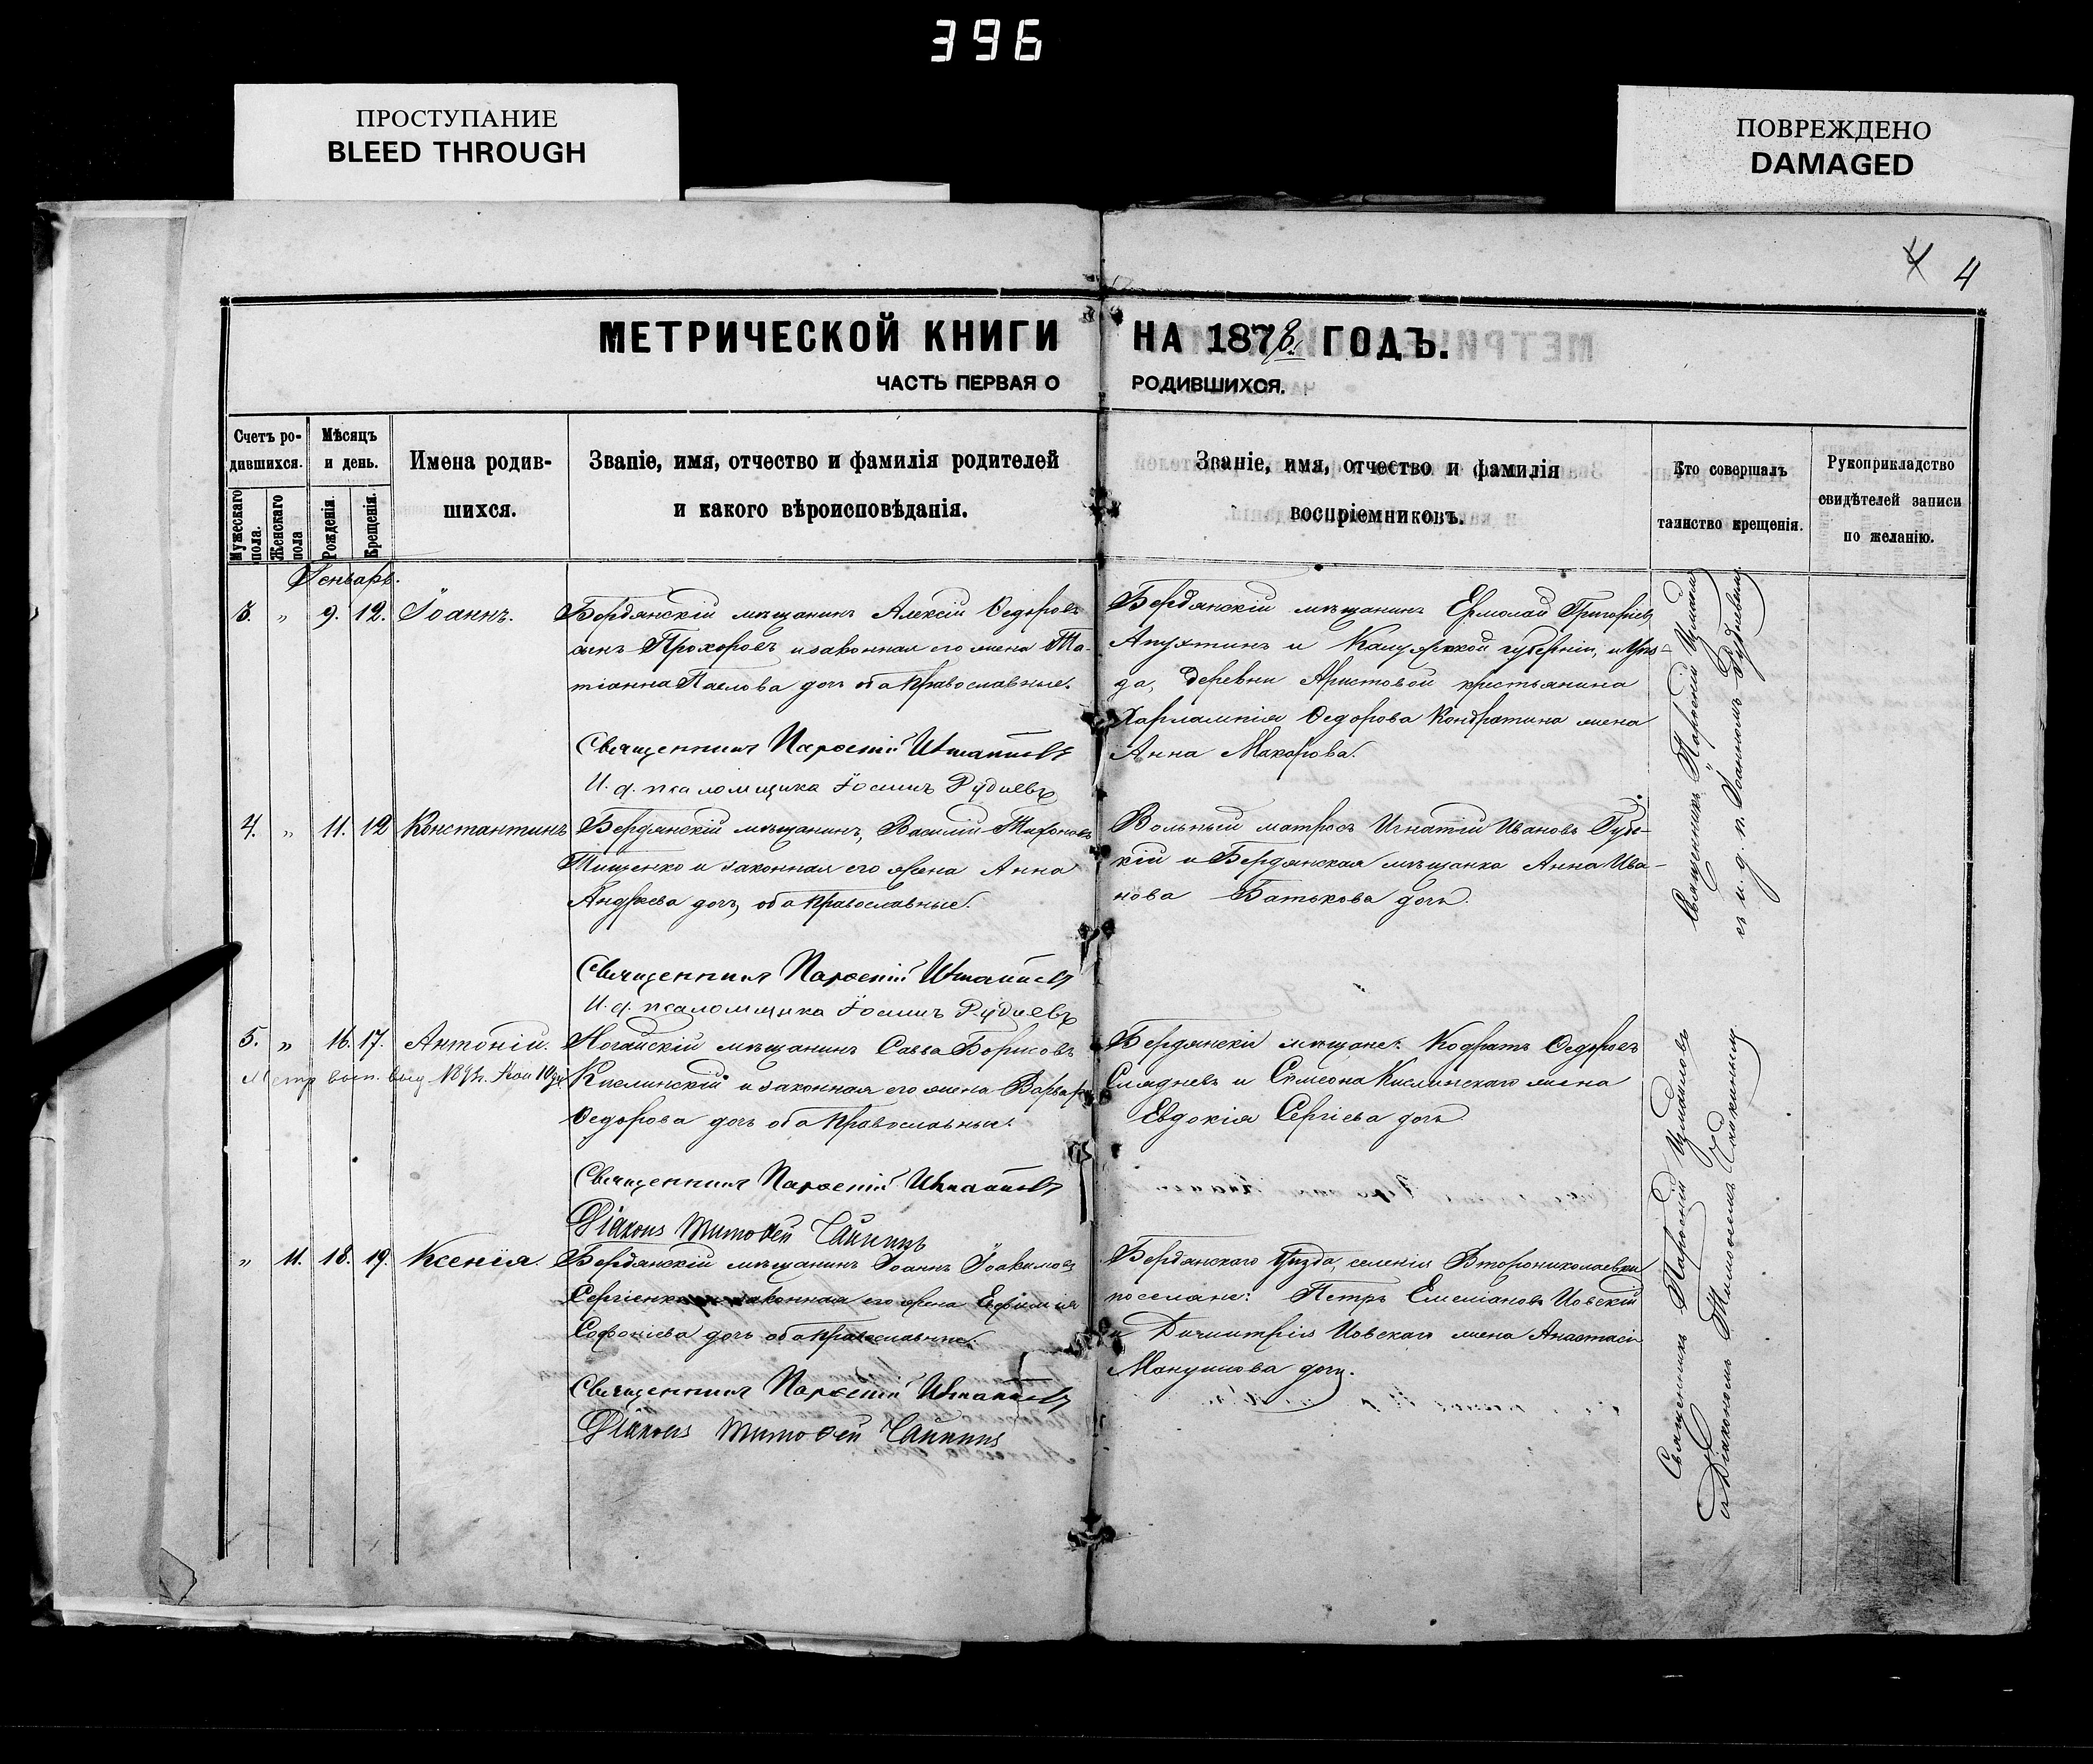 396
ПРОСТУПАНИЕ
BLEED THROUGH
ПОВРЕЖДЕНО
DAMAGED
4
МЕТРИЧЕСКОЙ КНИГИ НА 1878 ГОДЪ.
ЧАСТЬ ПЕРВАЯ О РОДИВШИХСЯ.
Счетъ ро-
дившихся.
Мужескаго пола.
Женскаго пола
Мѣсяцъ
и день.
Рожденія.
Крещенія.
Имена родив-
шихся.
Званіе, имя, отчество и фамилія родителей
и какого вѣроисповѣданія.
Званіе, имя, отчество и фамилія
воспріемниковъ.
Кто совершалъ
таинство крещенія.
Рукоприкладство
свидѣтелей записи
по желанію.
Генварь.
3. " 9. 12. Іоаннъ.
Бердянскій мѣщанинъ Алексій Ѳедоровъ
синъ Прохоровъ и законная его жена Та-
тіанна Павлова дочь оба православные.
Священникъ Парѳеній Измаиловъ
И. д. псаломщика Іоаннъ Рудневъ
Бердянскій мѣщанинъ Ермолай Григоріевъ
Апухтинъ и Калужской губерніи, и уѣз-
да, деревни Аристовой крестьянина
Харлампія Ѳедорова Кондратина жена
Анна Макарова.
Священникъ Парѳеній Измаиловъ
съ и. д. п. Іоанномъ Рудневымъ.
4. " 11. 12 Константинъ
Бердянскій мѣщанинъ, Василій Тихоновъ
Тищенко и законная его жена Анна
Андреева дочь, оба православные.
Священникъ Парѳеній Измаиловъ
И. д. псаломщика Іоаннъ Рудневъ
Вольный матросъ Игнатій Ивановъ Губс-
кій и Бердянская мѣщанка Анна Ива-
нова Батькова дочь.
5. " 16. 17. Антоній.
Метр выд. 1894.
Ногайскій мѣщанинъ Савва Борисовъ
Кислинскій и законная его жена Варвара
Ѳедорова дочь оба православные.
Священникъ Парѳеній Измаиловъ
Діаконъ Тимоѳей
Бердянскіе мѣщане: Кодратъ Ѳедоровъ
Слядневъ и Симеона Кислинскаго жена
Евдокія Сергіева дочь.
Священникъ Парѳеній Измаиловъ
съ Діакономъ Тимоѳеемъ
" 11. 18. 19. Ксенія.
Бердянскій мѣщанинъ Іоаннъ Іоакимовъ
Сергіенко и законная его жена Евфимія
Софоніева дочь оба православные.
Священникъ Парѳеній Измаиловъ
Діаконъ Тимоѳей
Бердянскаго Уѣзда, селенія Второниколаевки
поселяне: Петръ Емеліановъ Іовскій
и Димитрія Іовскаго жена Анастасія
дочь.